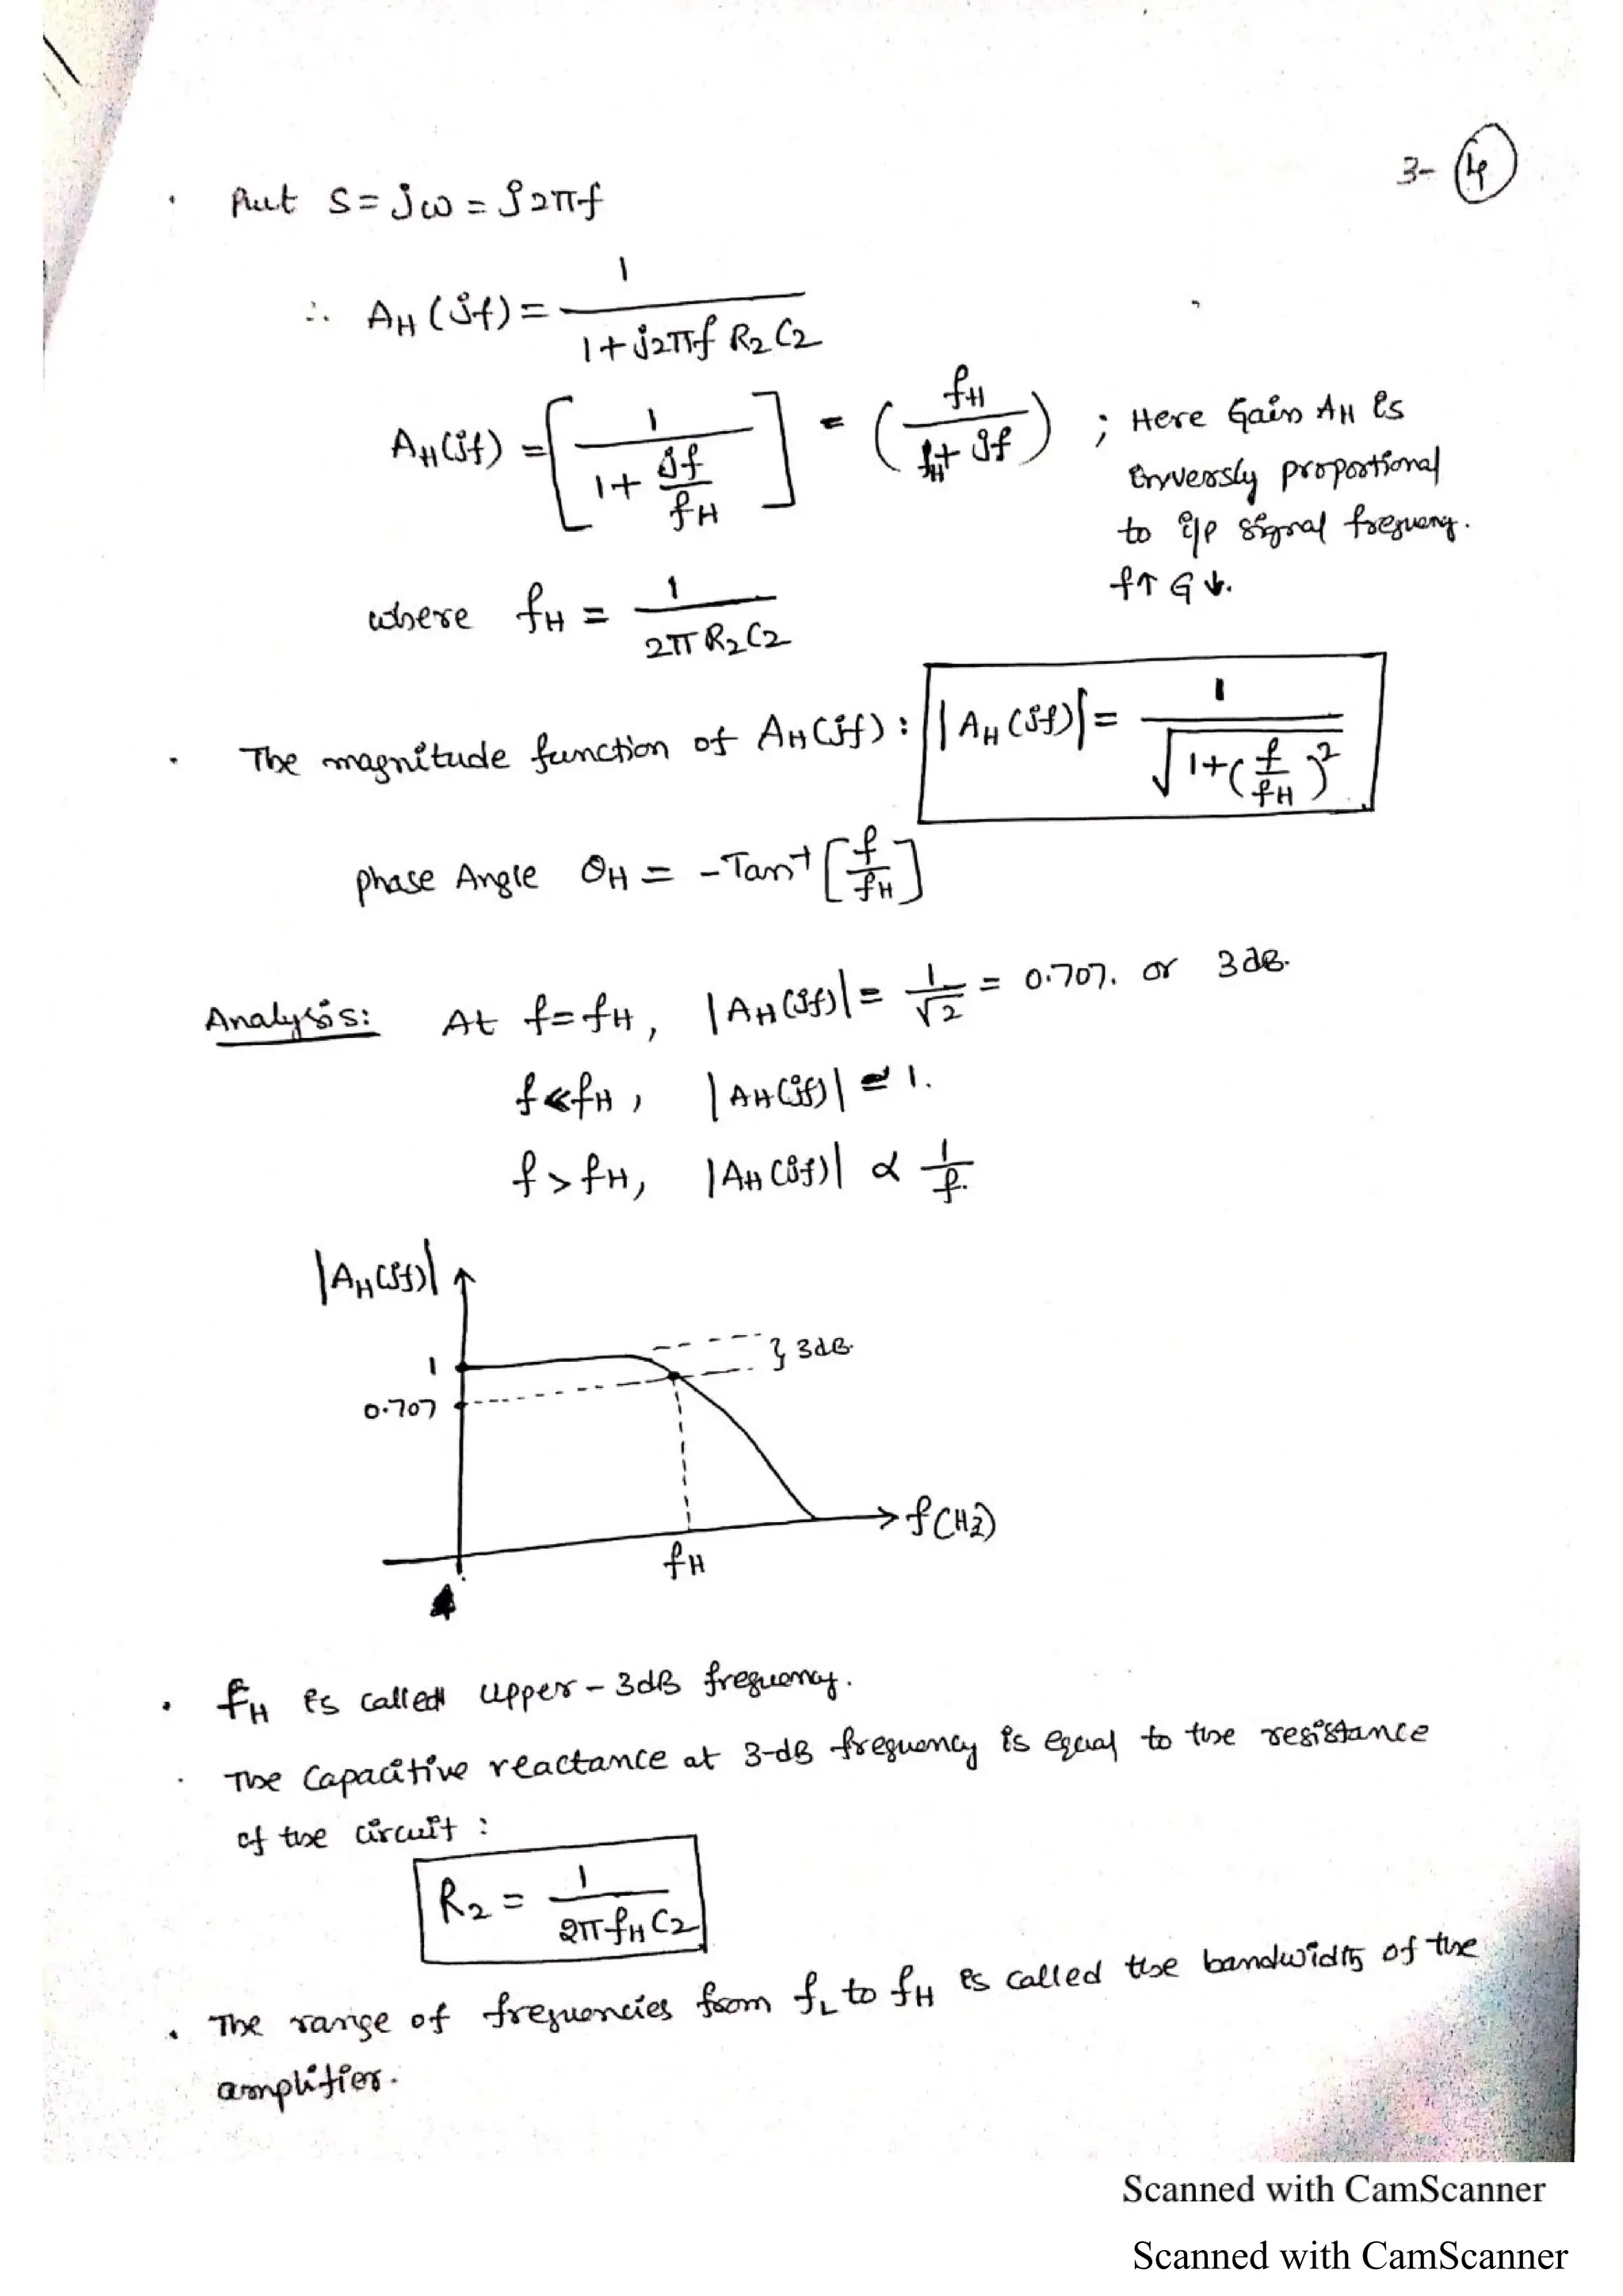 3- 4
· Put S = jω = j2πf
∴ AH (jf) = 1 / (1 + j2πf R2 C2)
AH(jf) = [ 1 / (1 + jf/fH) ] = ( fH / (fH + jf) ) ; Here Gain AH is
inversly proportional
to i/p signal frequency.
f↑ G↓.
where fH = 1 / (2π R2C2)
· The magnitude function of AH(jf) : |AH (jf)| = 1 / √(1+(f/fH)²)
phase Angle θH = -Tan⁻¹ [f/fH]
Analysis: At f = fH, |AH(jf)| = 1/√2 = 0.707. or 3dB.
f ≪ fH, |AH(jf)| ≃ 1.
f > fH, |AH(jf)| ∝ 1/f.
|AH(jf)|
1
} 3dB.
0.707
f(Hz)
fH
· fH is called upper-3dB frequency.
· The Capacitive reactance at 3-dB frequency is equal to the resistance
of the circuit :
R2 = 1 / (2πfH C2)
· The range of frequencies from fL to fH is called the bandwidth of the
amplifier.
Scanned with CamScanner
Scanned with CamScanner